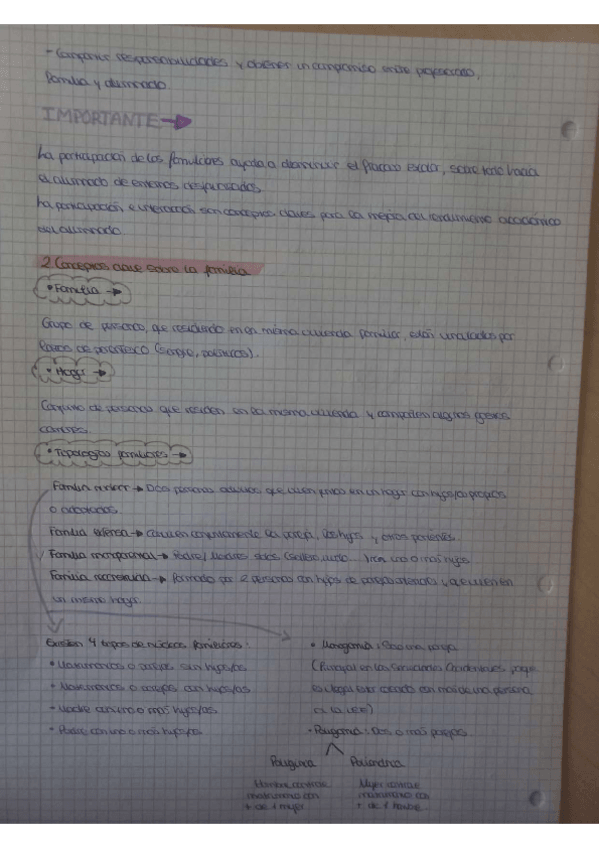 - Compartir responsabilidades y obtener un compromiso entre profesorado,
familia y alumnado.
IMPORTANTE →
La participación de los familiares ayuda a disminuir el fracaso escolar, sobre todo hacia
el alumnado de entornos desfavorecidos.
La participación e interacción son conceptos claves para la mejora del rendimiento académico
del alumnado.
2 Conceptos clave sobre la familia
• Familia →
Grupo de personas, que residiendo en la misma vivienda familiar, están vinculados por
lazos de parentesco (sangre, políticos).
• Hogar →
Conjunto de personas que residen en la misma vivienda y comparten algunos gastos
comunes.
• Tipologías familiares →
Familia nuclear → Dos personas adultas que viven juntos en un hogar con hijos/as propios
o adoptados.
Familia extensa → Conviven conjuntamente la pareja, los hijos y otros parientes.
Familia monoparental → Padres/Madres solos (soltero, viudo...) con uno o más hijos
Familia reconstituida → formada por 2 personas con hijos de parejas anteriores y que viven en
un mismo hogar.
Existen 4 tipos de núcleos familiares:
• Matrimonios o parejas sin hijos/as
• Matrimonios o parejas con hijos/as
• Madre con uno o más hijos/as
• Padre con uno o más hijos/as.
• Monogamia: Solo una pareja
(Principal en las Sociedades Occidentales, porque
es ilegal estar casado con más de una persona
es la LEY)
• Poligamia: Dos o más parejas.
Poliginia
Poliandria
Hombre contrae
matrimonio con
+ de 1 mujer
Mujer contrae
matrimonio con
+ de 1 hombre.